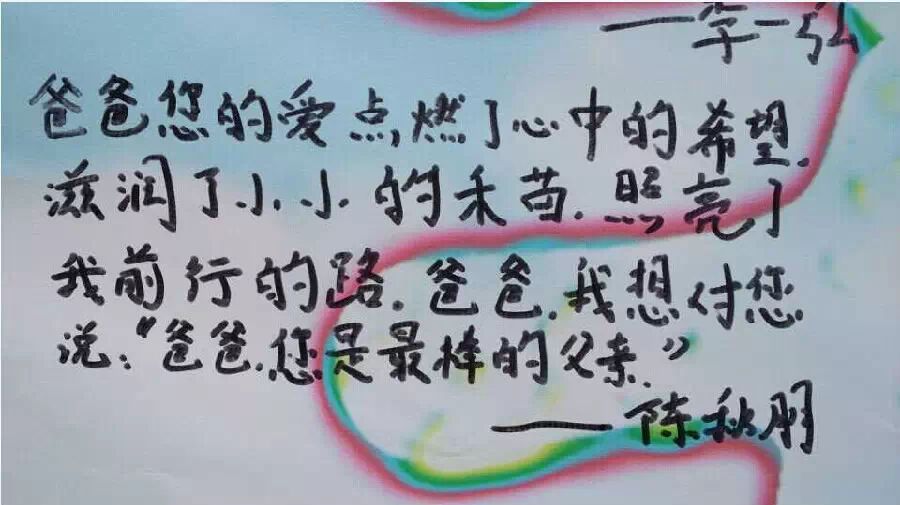 ——李一弘
爸爸您的爱点燃了心中的希望.
滋润了小小的禾苗.照亮了
我前行的路.爸爸.我想付您
说:“爸爸.您是最棒的父亲.”
——陈秋朋